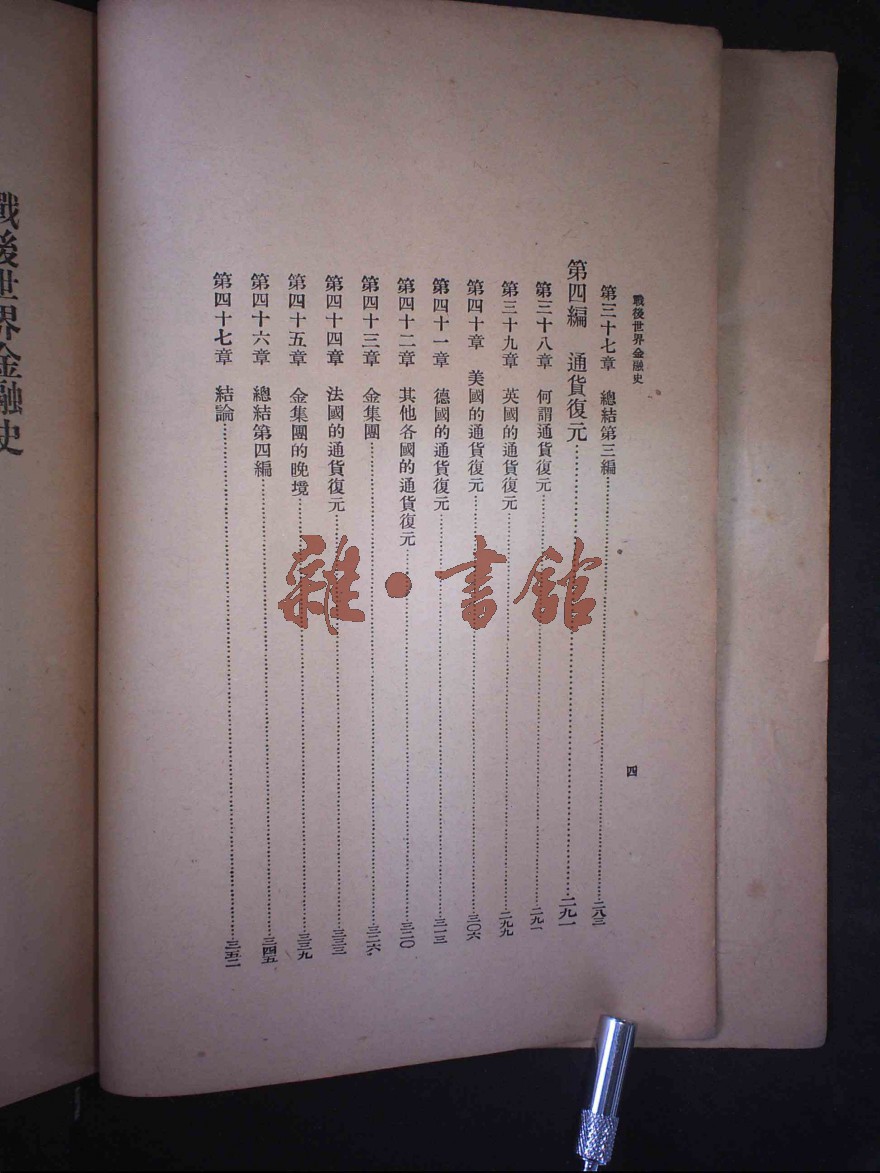 戰後世界金融史
第三十七章　總結第三編……二八三
第四編　通貨復元……二九一
第三十八章　何謂通貨復元……二九一
第三十九章　英國的通貨復元……二九九
第四十章　美國的通貨復元……三〇六
第四十一章　德國的通貨復元……三一三
第四十二章　其他各國的通貨復元……三二〇
第四十三章　金集團……三二六
第四十四章　法國的通貨復元……三三三
第四十五章　金集團的晚境……三三九
第四十六章　總結第四編……三四五
第四十七章　結論……三五二
四
戰後世界金融史
雜·書館